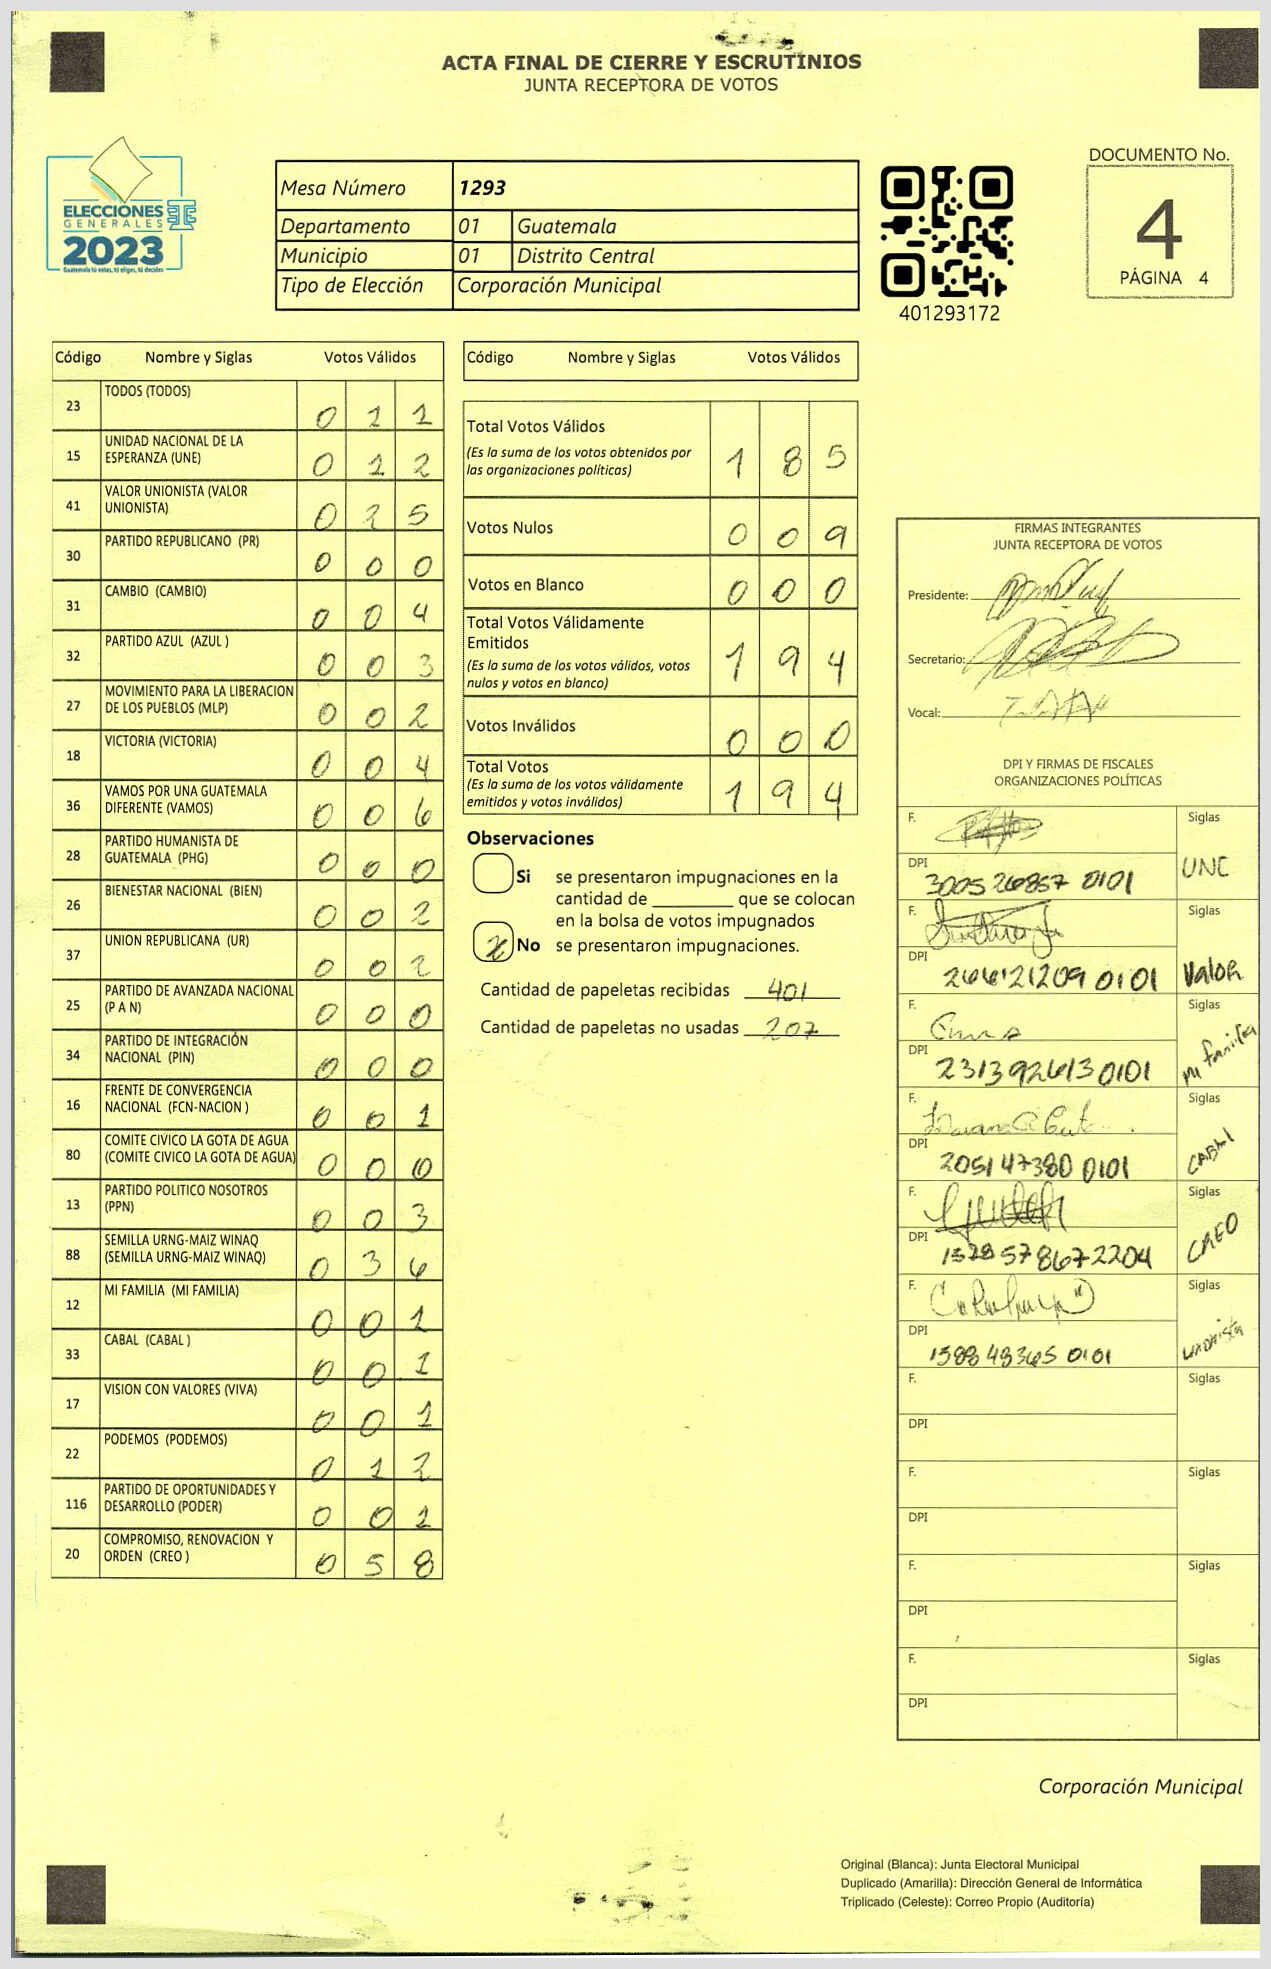 ACTA FINAL DE CIERRE Y ESCRUTINIOS
JUNTA RECEPTORA DE VOTOS
ELECCIONES
GENERALES
2023
Guatemala tú votas, tú eliges, tú decides
Mesa Número 1293
Departamento 01 Guatemala
Municipio 01 Distrito Central
Tipo de Elección Corporación Municipal
401293172
DOCUMENTO No.
4
PÁGINA 4
Código Nombre y Siglas Votos Válidos
23 TODOS (TODOS) 0 1 1
15 UNIDAD NACIONAL DE LA
ESPERANZA (UNE) 0 1 2
41 VALOR UNIONISTA (VALOR
UNIONISTA) 0 2 5
30 PARTIDO REPUBLICANO (PR) 0 0 0
31 CAMBIO (CAMBIO) 0 0 4
32 PARTIDO AZUL (AZUL ) 0 0 3
27 MOVIMIENTO PARA LA LIBERACION
DE LOS PUEBLOS (MLP) 0 0 2
18 VICTORIA (VICTORIA) 0 0 4
36 VAMOS POR UNA GUATEMALA
DIFERENTE (VAMOS) 0 0 6
28 PARTIDO HUMANISTA DE
GUATEMALA (PHG) 0 0 0
26 BIENESTAR NACIONAL (BIEN) 0 0 2
37 UNION REPUBLICANA (UR) 0 0 2
25 PARTIDO DE AVANZADA NACIONAL
(P A N) 0 0 0
34 PARTIDO DE INTEGRACIÓN
NACIONAL (PIN) 0 0 0
16 FRENTE DE CONVERGENCIA
NACIONAL (FCN-NACION ) 0 0 1
80 COMITE CIVICO LA GOTA DE AGUA
(COMITE CIVICO LA GOTA DE AGUA) 0 0 0
13 PARTIDO POLITICO NOSOTROS
(PPN) 0 0 3
88 SEMILLA URNG-MAIZ WINAQ
(SEMILLA URNG-MAIZ WINAQ) 0 3 6
12 MI FAMILIA (MI FAMILIA) 0 0 1
33 CABAL (CABAL ) 0 0 1
17 VISION CON VALORES (VIVA) 0 0 1
22 PODEMOS (PODEMOS) 0 1 2
116 PARTIDO DE OPORTUNIDADES Y
DESARROLLO (PODER) 0 0 1
20 COMPROMISO, RENOVACION Y
ORDEN (CREO ) 0 5 8
Código Nombre y Siglas Votos Válidos
Total Votos Válidos
(Es la suma de los votos obtenidos por
las organizaciones políticas) 1 8 5
Votos Nulos 0 0 9
Votos en Blanco 0 0 0
Total Votos Válidamente
Emitidos
(Es la suma de los votos válidos, votos
nulos y votos en blanco) 1 9 4
Votos Inválidos 0 0 0
Total Votos
(Es la suma de los votos válidamente
emitidos y votos inválidos) 1 9 4
Observaciones
Si se presentaron impugnaciones en la
cantidad de ________ que se colocan
en la bolsa de votos impugnados
X No se presentaron impugnaciones.
Cantidad de papeletas recibidas 401
Cantidad de papeletas no usadas 207
FIRMAS INTEGRANTES
JUNTA RECEPTORA DE VOTOS
Presidente:
Secretario:
Vocal:
DPI Y FIRMAS DE FISCALES
ORGANIZACIONES POLÍTICAS
F. Siglas
DPI 3005 26857 0101 UNC
F. Siglas
DPI 266121209 0101 Valor
F. Siglas
DPI 231392613 0101 Mi familia
F. Siglas
DPI 205147380 0101 CABAl
F. Siglas
DPI 1528578672204 CREO
F. Siglas
DPI 1588 48365 0101 unionista
F. Siglas
DPI
F. Siglas
DPI
F. Siglas
DPI
F. Siglas
DPI
Corporación Municipal
Original (Blanca): Junta Electoral Municipal
Duplicado (Amarilla): Dirección General de Informática
Triplicado (Celeste): Correo Propio (Auditoría)